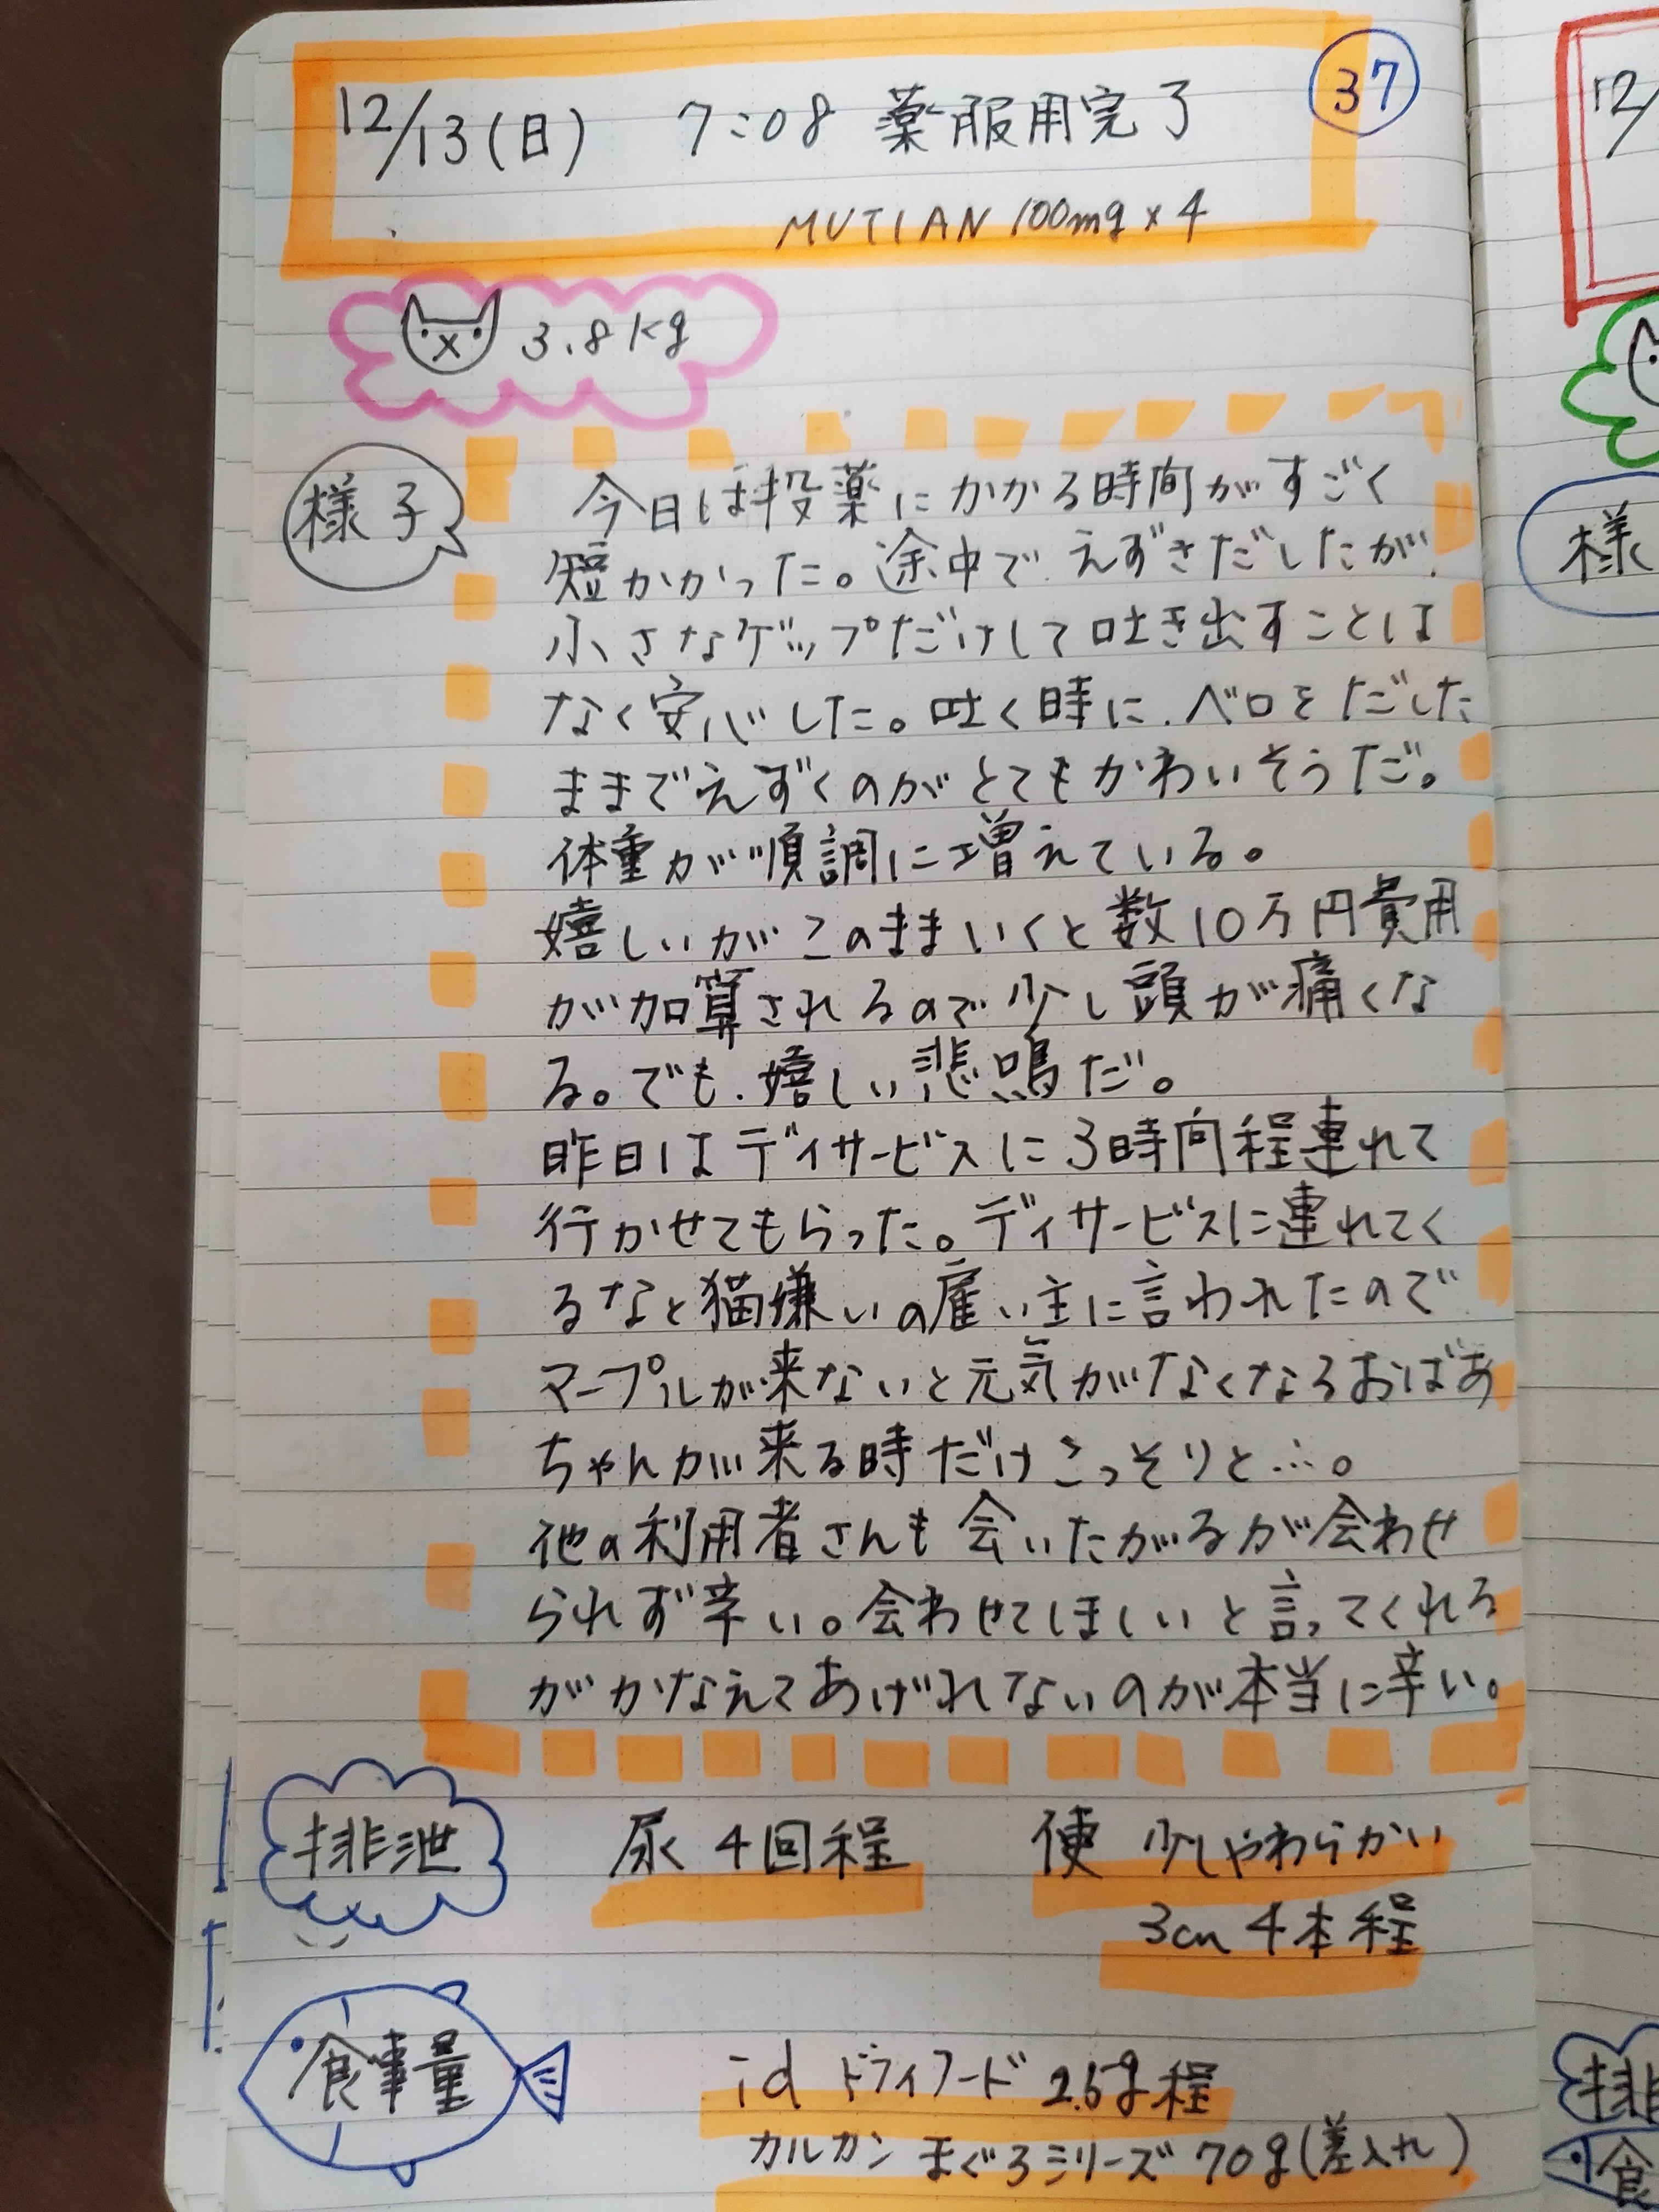 12/13(日) 7:08 薬服用完了
37
MUTIAN 100mg×4
3.8kg
様子
今日は投薬にかかる時間がすごく
短かかった。途中で、えずきだしたが、
小さなゲップだけして吐き出すことは
なく安心した。吐く時に、ベロをだした
ままでえずくのがとてもかわいそうだ。
体重が順調に増えている。
嬉しいがこのままいくと数10万円費用
が加算されるので少し頭が痛くな
る。でも、嬉しい悲鳴だ。
昨日はデイサービスに3時間程連れて
行かせてもらった。デイサービスに連れてく
るなと猫嫌いの雇い主に言われたので
マープルが来ないと元気がなくなるおばあ
ちゃんが来る時だけこっそりと…。
他の利用者さんも会いたがるが会わせ
られず辛い。会わせてほしいと言ってくれる
がかなえてあげれないのが本当に辛い。
排泄
尿 4回程 便 少しやわらかい
3cm 4本程
食事量
id ドライフード 2.5g程
カルカン まぐろシリーズ 70g(差入れ)
12/
様
排
食